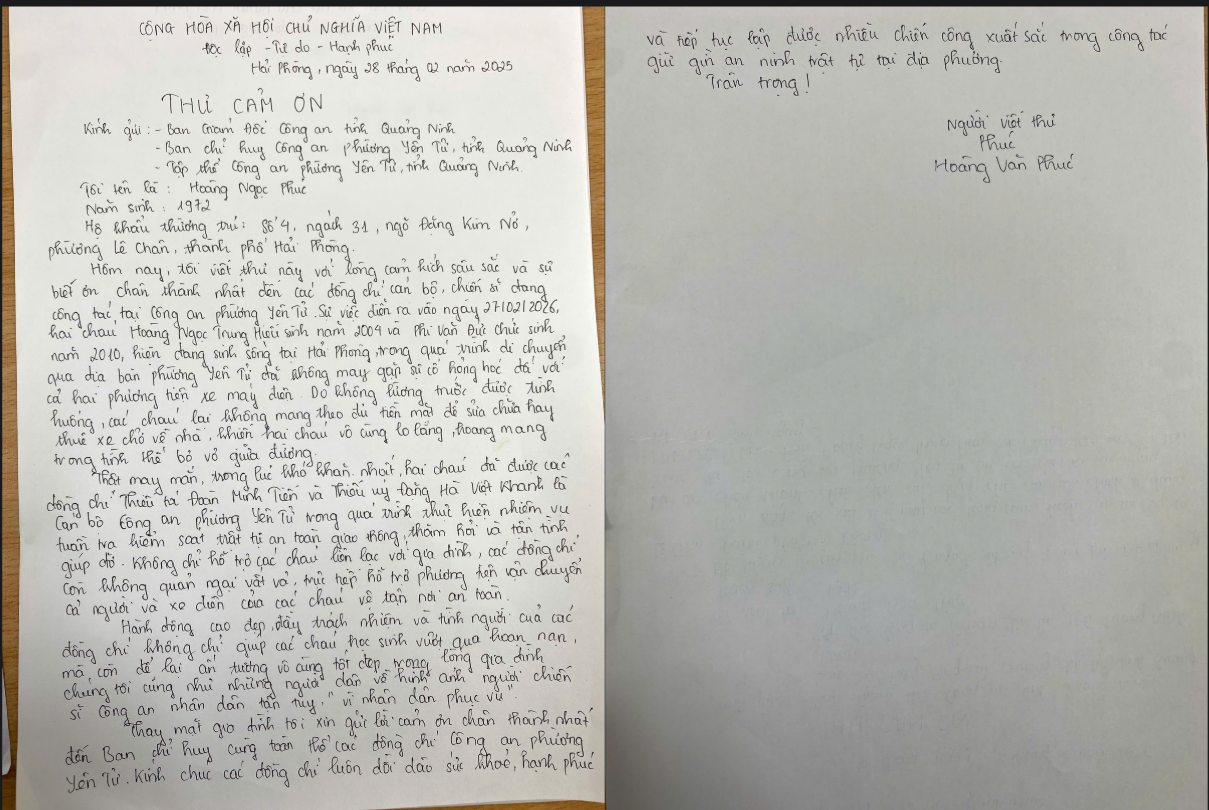 CỘNG HÒA XÃ HỘI CHỦ NGHĨA VIỆT NAM
Độc lập - Tự do - Hạnh phúc
Hải Phòng, ngày 28 tháng 02 năm 2025
THƯ CẢM ƠN
Kính gửi : - Ban Giám Đốc Công an tỉnh Quảng Ninh
- Ban chỉ huy Công an phường Yên Tử, tỉnh Quảng Ninh
- Tập thể Công an phường Yên Tử, tỉnh Quảng Ninh.
Tôi tên là : Hoàng Ngọc Phúc
Năm sinh : 1972
Hộ khẩu thường trú : Số 4, ngách 31, ngõ Đặng Kim Nở,
phường Lê Chân, thành phố Hải Phòng.
Hôm nay, tôi viết thư này với lòng cảm kích sâu sắc và sự
biết ơn chân thành nhất đến các đồng chí cán bộ, chiến sĩ đang
công tác tại Công an phường Yên Tử. Sự việc diễn ra vào ngày 27/02/2026,
hai cháu Hoàng Ngọc Trung Hiếu sinh năm 2009 và Phí Văn Đức Chức sinh
năm 2010, hiện đang sinh sống tại Hải Phòng, trong quá trình di chuyển
qua địa bàn phường Yên Tử đã không may gặp sự cố hỏng hóc đối với
cả hai phương tiện xe máy điện. Do không lường trước được tình
huống, các cháu lại không mang theo đủ tiền mặt để sửa chữa hay
thuê xe chở về nhà, khiến hai cháu vô cùng lo lắng, hoang mang
trong tình thế bơ vơ giữa đường.
Thật may mắn, trong lúc khó khăn nhất, hai cháu đã được các
đồng chí Thiếu tá Đoàn Minh Tiến và Thiếu uý Đặng Hà Việt Khanh là
Cán bộ Công an phường Yên Tử trong quá trình thực hiện nhiệm vụ
tuần tra kiểm soát trật tự an toàn giao thông, thăm hỏi và tận tình
giúp đỡ. Không chỉ hỗ trợ các cháu liên lạc với gia đình, các đồng chí
còn không quản ngại vất vả, trực tiếp hỗ trợ phương tiện vận chuyển
cả người và xe điện của các cháu về tận nơi an toàn.
Hành động cao đẹp, đầy trách nhiệm và tình người của các
đồng chí không chỉ giúp các cháu học sinh vượt qua hoạn nạn,
mà còn để lại ấn tượng vô cùng tốt đẹp trong lòng gia đình
chúng tôi cũng như những người dân về hình ảnh người chiến
sĩ Công an nhân dân tận tụy, "vì nhân dân phục vụ".
Thay mặt gia đình tôi xin gửi lời cảm ơn chân thành nhất
đến Ban chỉ huy cùng toàn thể các đồng chí Công an phường
Yên Tử. Kính chúc các đồng chí luôn dồi dào sức khoẻ, hạnh phúc
và tiếp tục lập được nhiều chiến công xuất sắc trong công tác
giữ gìn an ninh trật tự tại địa phương.
Trân trọng !
Người viết thư
Phúc
Hoàng Văn Phúc